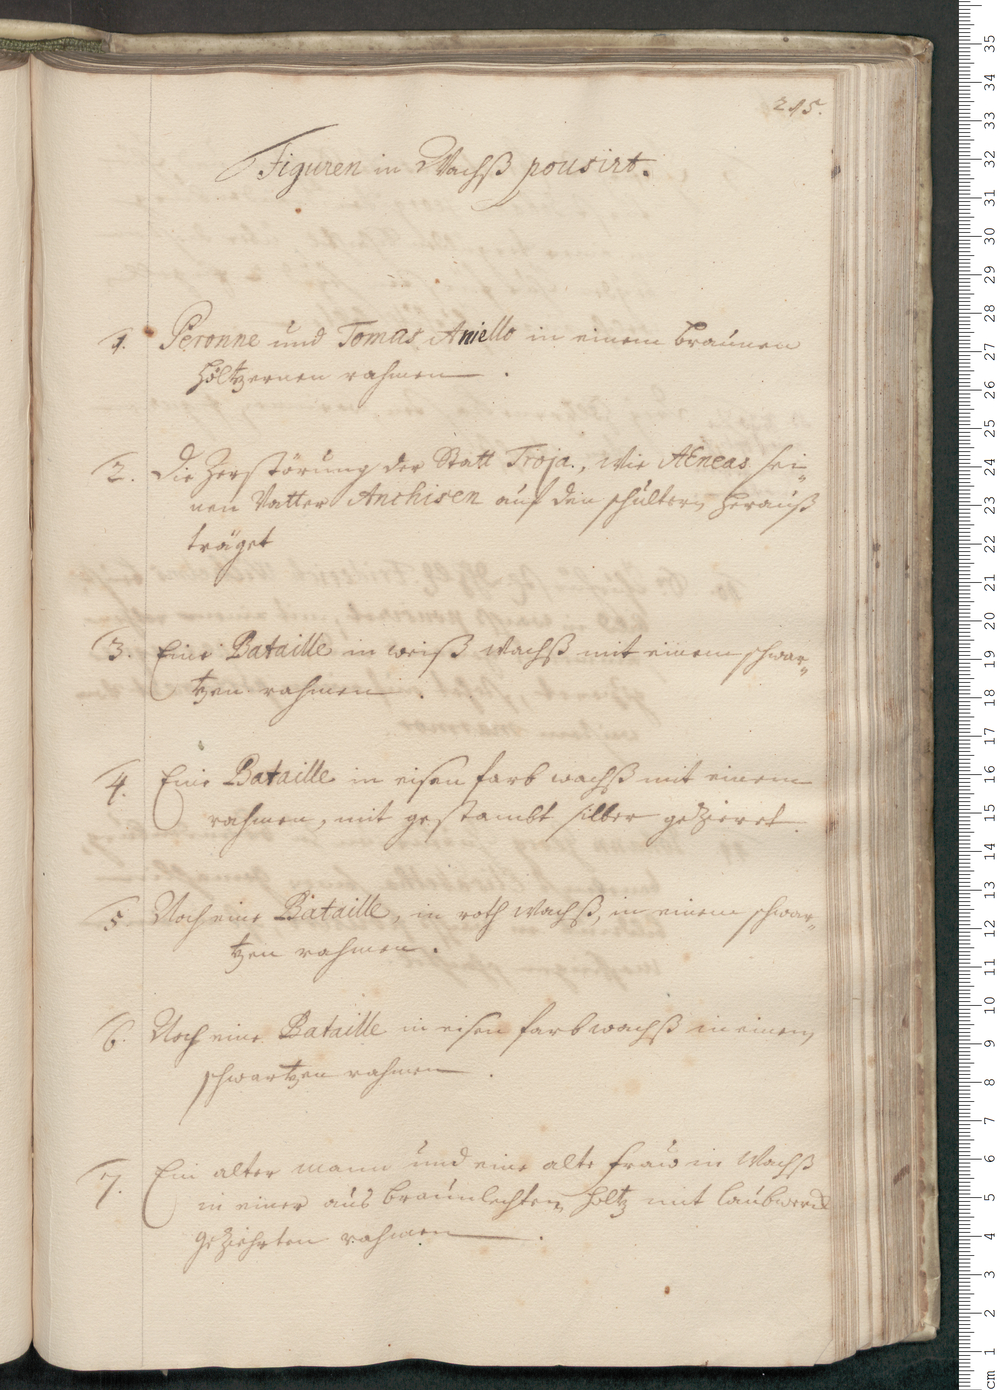 215.
Figuren in Wachß pousirt.
1. Peronne und Tomas Aniello in einem braunen
höltzernen rahmen.
2. Die Zerstörung der Statt Troja., wie AEneas sei-
nen Vatter Anchisen auf den schultern herauß
träget
3. Eine Bataille in weiß Wachß mit einem schwar-
tzen rahmen.
4. Eine Bataille in eisen farb wachß mit einem
rahmen, mit gestambt silber gezieret.
5. Noch eine Bataille, in roth Wachß, in einem schwar-
tzen rahmen.
6. Noch eine Bataille in eisen farb wachß in einem
schwartzen rahmen.
7. Ein alter mann und eine alte frau in Wachß
in einer aus braunlechten holtz mit laubwerck
geziehrten rahmen.